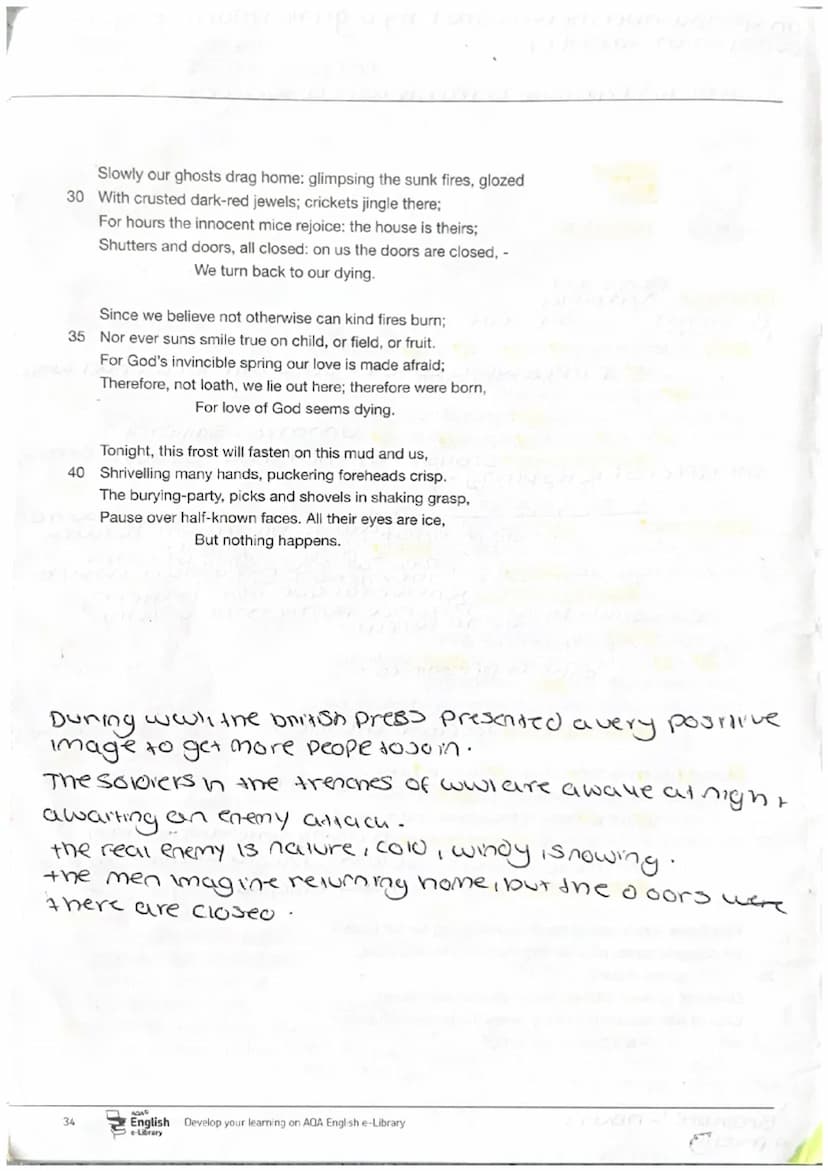 Slowly our ghosts drag home: glimpsing the sunk fires, glozed
30 With crusted dark-red jewels; crickets jingle there;
For hours the innocent mice rejoice: the house is theirs;
Shutters and doors, all closed: on us the doors are closed, -
We turn back to our dying.
Since we believe not otherwise can kind fires burn;
35 Nor ever suns smile true on child, or field, or fruit.
For God's invincible spring our love is made afraid;
Therefore, not loath, we lie out here; therefore were born,
For love of God seems dying.
Tonight, this frost will fasten on this mud and us,
40 Shrivelling many hands, puckering foreheads crisp.
The burying-party, picks and shovels in shaking grasp,
Pause over half-known faces. All their eyes are ice,
But nothing happens.
During ww1, the british press presented a very positive
image to get more peope to join.
The soldiers in the trenches of ww1 are awake at night
awaiting an enemy attack.
the real enemy is nature, cold, windy, snowing.
the men imagine returning home, but the doors were
there are closed.
34 AQA English e-Library Develop your learning on AQA English e-Library